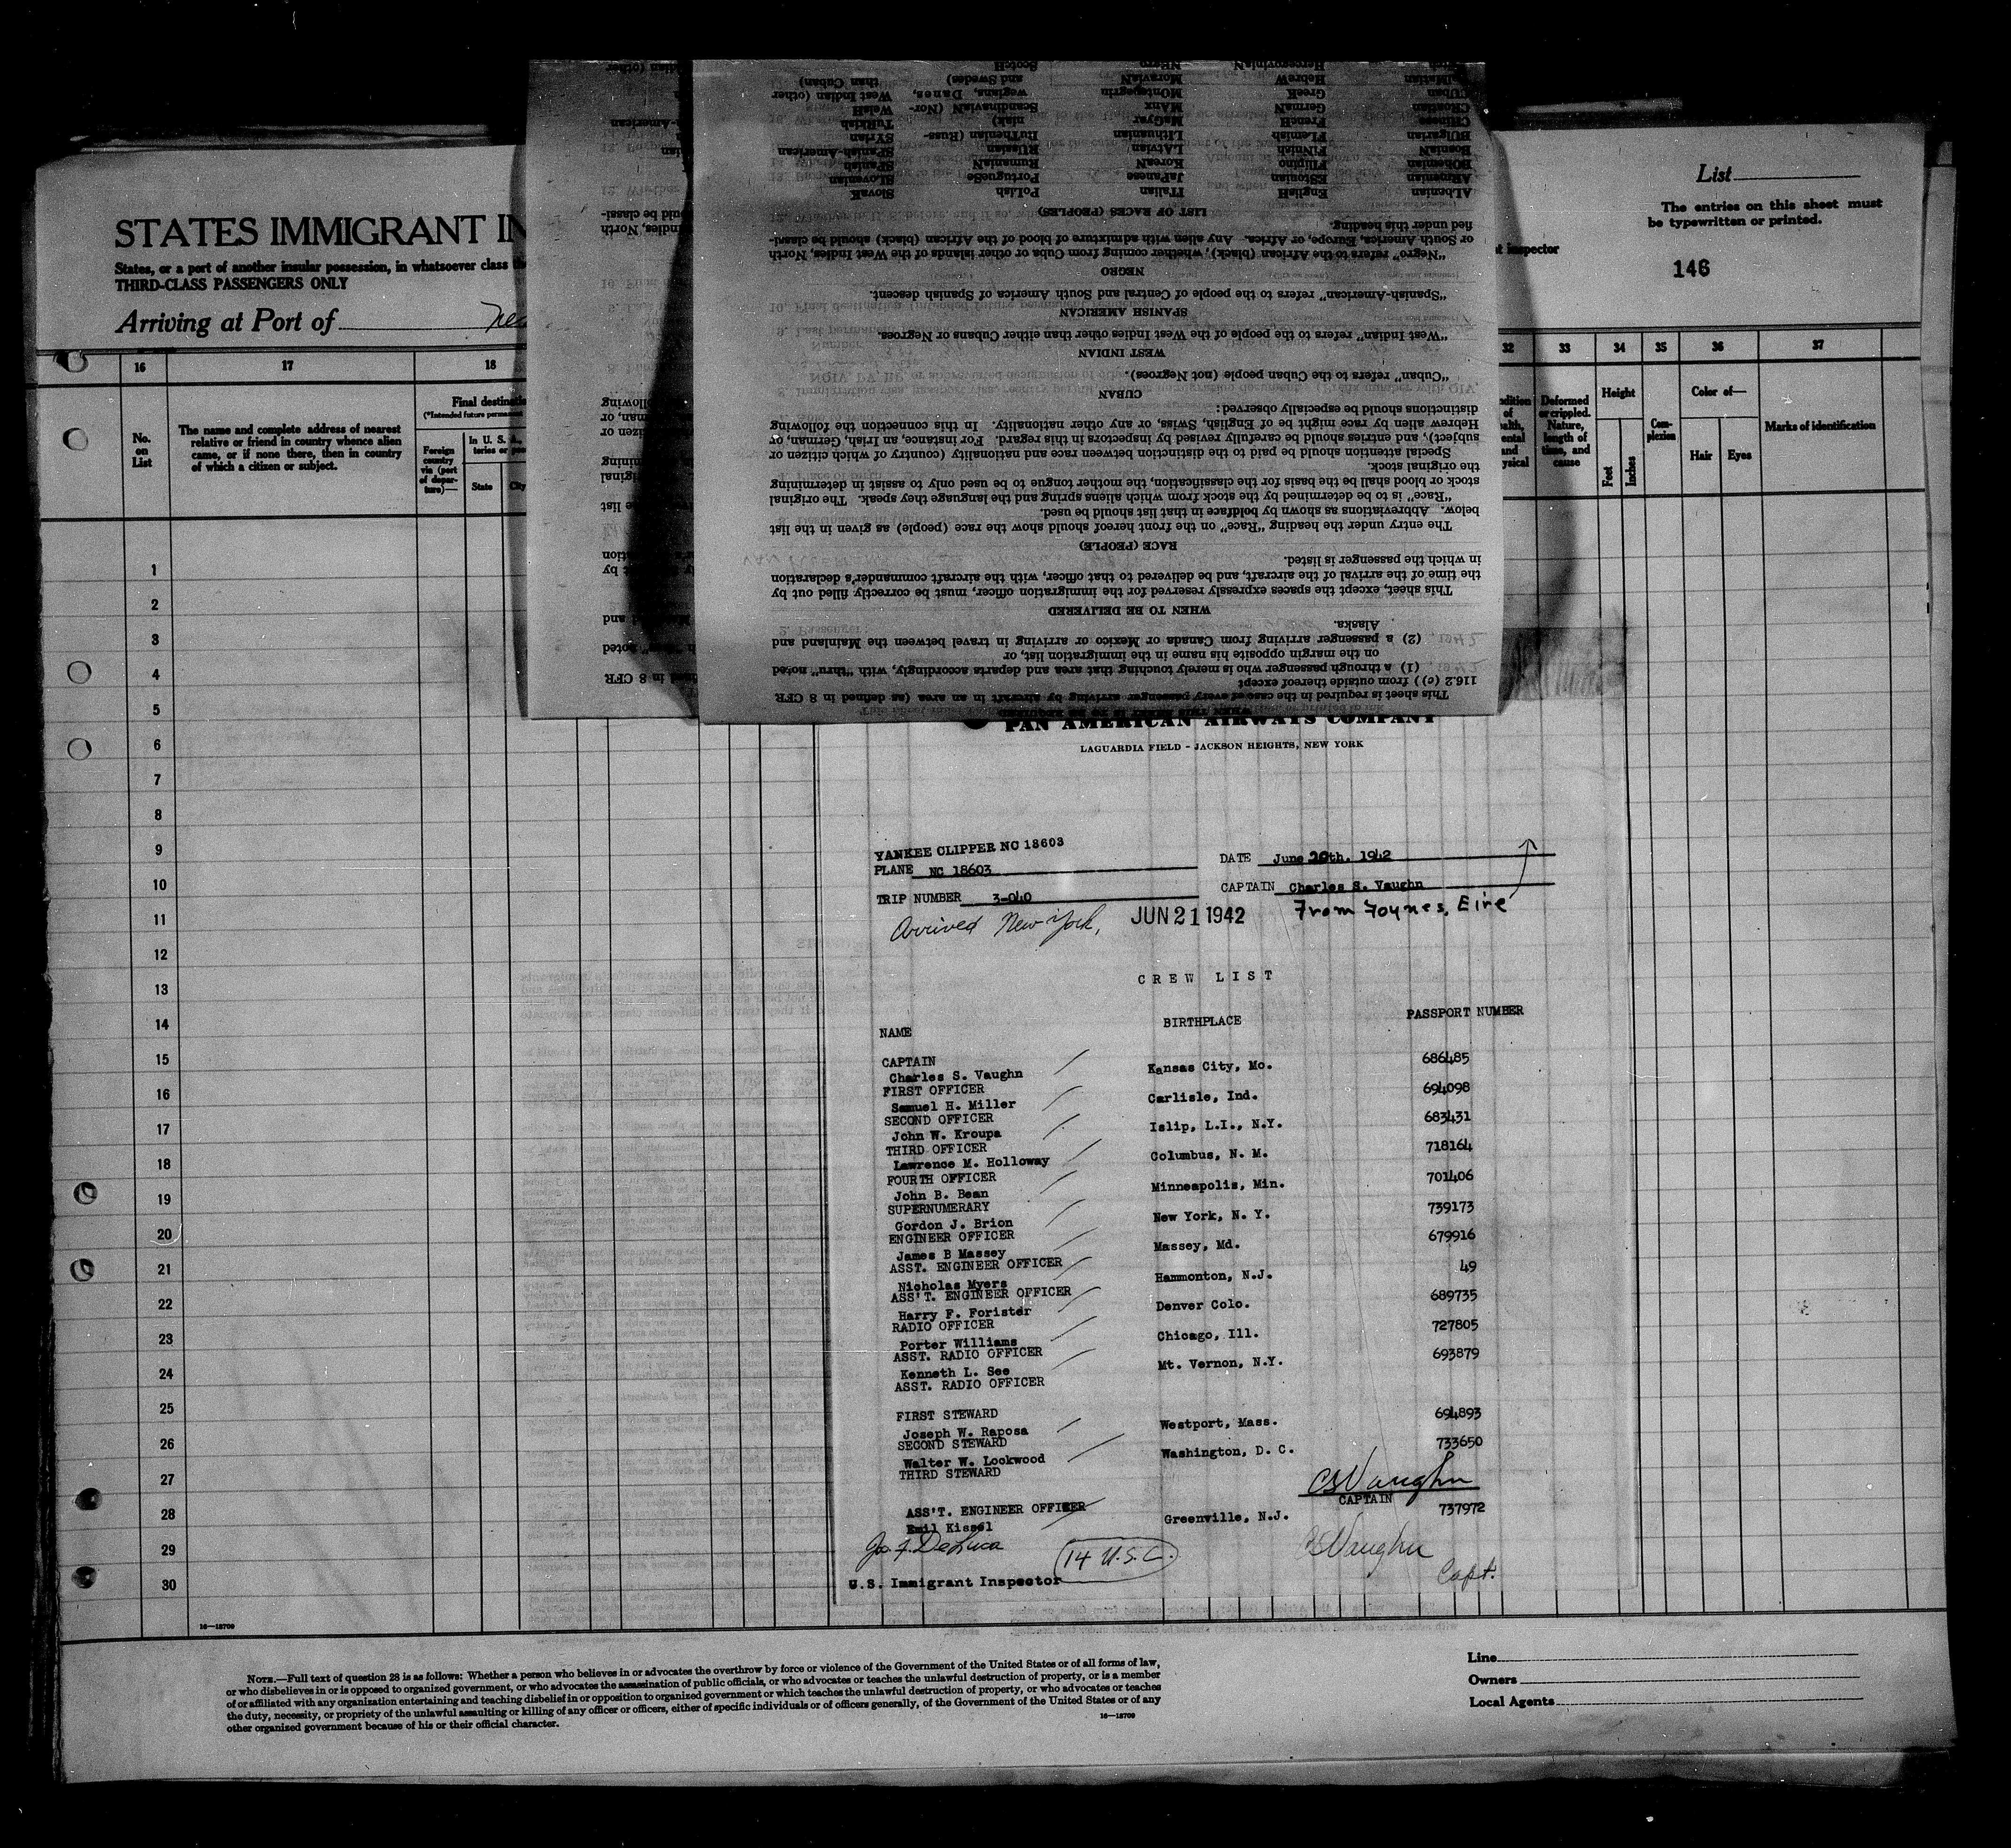 STATES IMMIGRANT IN
States, or a port of another insular possession, in whatsoever class
THIRD-CLASS PASSENGERS ONLY
Arriving at Port of
List
The entries on this sheet must
be typewritten or printed.
inspector
146
16 17 18 32 33 34 35 36 37
No.
on
List
The name and complete address of nearest
relative or friend in country whence alien
came, or if none there, then in country
of which a citizen or subject.
Final
(*Intended future
Foreign
country
via (port
of depar-
ture)—
In U. S.
State
City
Deformed
or crippled.
Nature,
length of
time, and
cause
Height
Feet
Inches
Com-
plexion
Color of—
Hair
Eyes
Marks of identification
1
2
3
4
5
6
7
8
9
10
11
12
13
14
15
16
17
18
19
20
21
22
23
24
25
26
27
28
29
30
16—18709
This sheet is required in the case of every passenger arriving by aircraft in an area (as defined in 8 CFR
116.2 (c)) from outside thereof except
(1) a through passenger who is merely touching that area and departs accordingly, with "thru" noted
on the margin opposite his name in the immigration list, or
(2) a passenger arriving from Canada or Mexico or arriving in travel between the Mainland and
Alaska.
WHEN TO BE DELIVERED
This sheet, except the spaces expressly reserved for the immigration officer, must be correctly filled out by
the time of the arrival of the aircraft, and be delivered to that officer, with the aircraft commander's declaration
in which the passenger is listed.
RACE (PEOPLE)
The entry under the heading "Race" on the front hereof should show the race (people) as given in the list
below. Abbreviations as shown by boldface in that list should be used.
"Race" is to be determined by the stock from which aliens spring and the language they speak. The original
stock or blood shall be the basis for the classification, the mother tongue to be used only to assist in determining
the original stock.
Special attention should be paid to the distinction between race and nationality (country of which citizen or
subject), and entries should be carefully revised by inspectors in this regard. For instance, an Irish, German, or
Hebrew alien by race might be of English, Swiss, or any other nationality. In this connection the following
distinctions should be especially observed:
CUBAN
"Cuban" refers to the Cuban people (not Negroes).
WEST INDIAN
"West Indian" refers to the people of the West Indies other than either Cubans or Negroes.
SPANISH AMERICAN
"Spanish-American" refers to the people of Central and South America of Spanish descent.
NEGRO
"Negro" refers to the African (black), whether coming from Cuba or other islands of the West Indies, North
or South America, Europe, or Africa. Any alien with admixture of blood of the African (black) should be classi-
fied under this heading.
LIST OF RACES (PEOPLES)
ALbanian EngLisH ITalian PoLish SlovaK
ARmenian EStonian JaPanese PortuguEse SLovenian
BOhemian FIlipino KoreaN RumaniaN SPanish
BosniaN FiNnish LAtvian RUssian SPanish-American
BUlgarian FLemish LIthuanian RuThenian (Russ- SYrian
CHinese FrencH MaGyar niak) TuRkish
CRoatian GermaN MAnx ScandinaviaN (Nor- WelsH
CUban GreeK MOntenegrin wegians, Danes, West Indian (other
DalMatian HebreW MoraviaN and Swedes) than Cuban)
HerzegoviniaN NEgro ScotcH
PAN AMERICAN AIRWAYS COMPANY
LAGUARDIA FIELD - JACKSON HEIGHTS, NEW YORK
YANKEE CLIPPER NC 18603
PLANE NC 18603
DATE June 20th. 1942
TRIP NUMBER 3-040
CAPTAIN Charles S. Vaughn
Arrived New York, JUN 21 1942
From Foynes, Eire
CREW LIST
NAME BIRTHPLACE PASSPORT NUMBER
CAPTAIN
Charles S. Vaughn Kansas City, Mo. 686485
FIRST OFFICER
Samuel H. Miller Carlisle, Ind. 694098
SECOND OFFICER
John W. Kroupa Islip, L.I., N.Y. 683431
THIRD OFFICER
Lawrence M. Holloway Columbus, N. M. 718164
FOURTH OFFICER
John B. Bean Minneapolis, Min. 701406
SUPERNUMERARY
Gordon J. Brion New York, N. Y. 739173
ENGINEER OFFICER
James B Massey Massey, Md. 679916
ASST. ENGINEER OFFICER
Nicholas Myers Hammonton, N.J. 49
ASS'T. ENGINEER OFFICER
Harry F. Forister Denver Colo. 689735
RADIO OFFICER
Porter Williams Chicago, Ill. 727805
ASST. RADIO OFFICER
Kenneth L. See Mt. Vernon, N.Y. 693879
ASST. RADIO OFFICER
FIRST STEWARD
Joseph W. Raposa Westport, Mass. 694893
SECOND STEWARD
Walter W. Lockwood Washington, D. C. 733650
THIRD STEWARD
CSVaughn
CAPTAIN
ASS'T. ENGINEER OFFICER
Emil Kissel Greenville, N.J. 737972
Jos. F. DeLuca
14 U.S.C.
CSVaughn
Capt.
U.S. Immigrant Inspector
NOTE.—Full text of question 28 is as follows: Whether a person who believes in or advocates the overthrow by force or violence of the Government of the United States or of all forms of law,
or who disbelieves in or is opposed to organized government, or who advocates the assassination of public officials, or who advocates or teaches the unlawful destruction of property, or is a member
of or affiliated with any organization entertaining and teaching disbelief in or opposition to organized government or which teaches the unlawful destruction of property, or who advocates or teaches
the duty, necessity, or propriety of the unlawful assaulting or killing of any officer or officers, either of specific individuals or of officers generally, of the Government of the United States or of any
other organized government because of his or their official character.
16—18709
Line
Owners
Local Agents